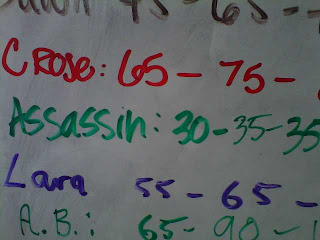 45-65-
C Rose: 65-75-
Assassin: 30-35-35
Lara 55-65-
A.B.: 65-90-1